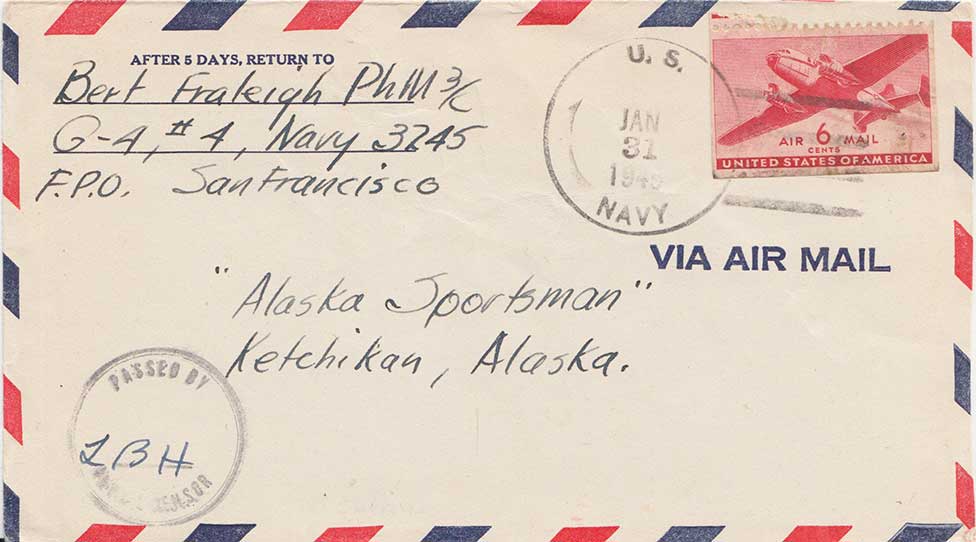 AFTER 5 DAYS, RETURN TO
Bert Fraleigh PhM 3/c
G-4, #4, Navy 3245
F.P.O. San Francisco
U. S.
JAN
31
NAVY
AIR 6 MAIL
CENTS
UNITED STATES OF AMERICA
VIA AIR MAIL
"Alaska Sportsman"
Ketchikan, Alaska.
PASSED BY
LBH
CENSOR